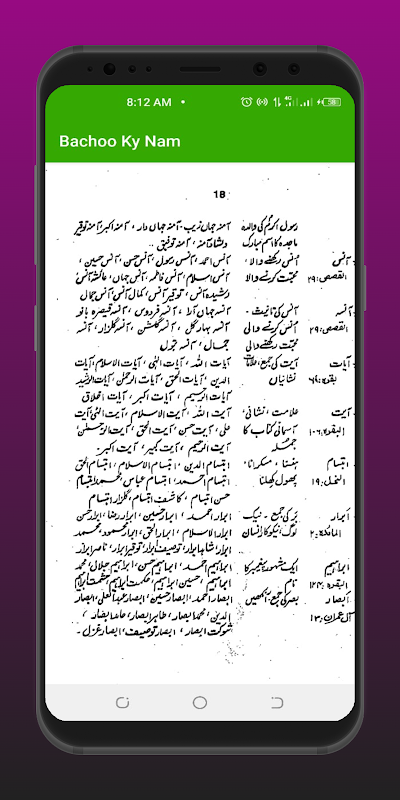 8:12 AM
4G
58
Bachoo Ky Nam
18
رسول اکرمؐ کی والدہ آمنہ جہاں زیب، آمنہ جہاں دار، آمنہ اکبر، آمنہ توقیر
ماجدہ کا اسم مبارک دلشاد آمنہ، آمنہ توفیق
آنس اُنس رکھنے والا، آنس احمد، آنس رسول، آنس حسن، آنس حسین،
القصص: ۲۹ محبت کرنے والا آنس اسلام، آنس فاطمہ، آنس جہاں، عائشہ آنس
رشیدہ آنس، توقیر آنس، کمال آنس، آنس جمال
آنسہ آنس کی تانیث - آنسہ جہاں آرا، آنسہ فردوس، آنسہ قیصرہ بانو
القصص: ۲۹ اُنس کرنے والی آنسہ بہار گل، آنسہ گلشن، آنسہ گلزار، آنسہ
محبت رکھنے والی جمال، آنسہ بتول
آیات آیت کی جمع، علامات آیات اللہ، آیات الٰہی، آیات الاسلام، آیات
بقرہ: ۶۹ نشانیاں الدین، آیات الحق، آیات الرحمٰن، آیات الرشید
آیات الرحیم، آیات اکبر، آیات اخلاق
آیت علامت، نشانی، آیت اللہ، آیت الاسلام، آیت الٰہی، آیت
البقرہ: ۱۰۶ آسمانی کتاب کا علی، آیت حسن، آیت الحق، آیت الرحمٰن،
جملہ آیت الرحیم، آیت کبیر، آیت اکبر
ابتسام ہنسنا، مسکرانا، ابتسام الدین، ابتسام الاسلام، ابتسام الحق
النمل: ۱۹ پھول کھلنا ابتسام احمد، ابتسام عباس، محمد ابتسام
حسن ابتسام، کاشف ابتسام، گلزار ابتسام
ابرار بَر کی جمع - نیک ابرار احمد، ابرار حسین، ابرار رضا، ابرار حسن
المائدہ: ۲ لوگ، نیکو کار انسان ابرار الاسلام، ابرار الحق، ابرار محمود، محمد
ابرار، شاہد ابرار، توصیف ابرار، توقیر ابرار، ناصر ابرار
ابراہیم ایک مشہور پیغمبر کا ابراہیم احمد، ابراہیم حسن، ابراہیم جلالی، محمد
البقرہ: ۱۲۴ نام ابراہیم، حسنین ابراہیم، حکمت ابراہیم، حشمت ابراہیم
ابصار بصر کی جمع، آنکھیں ابصار احمد، ابصار حسین، ابصار عبدالعلی، ابصار
آل عمران: ۱۳ الدین، محمد ابصار، طاہر ابصار، حامد ابصار،
شوکت ابصار، ابصار توصیف، ابصار غزل -